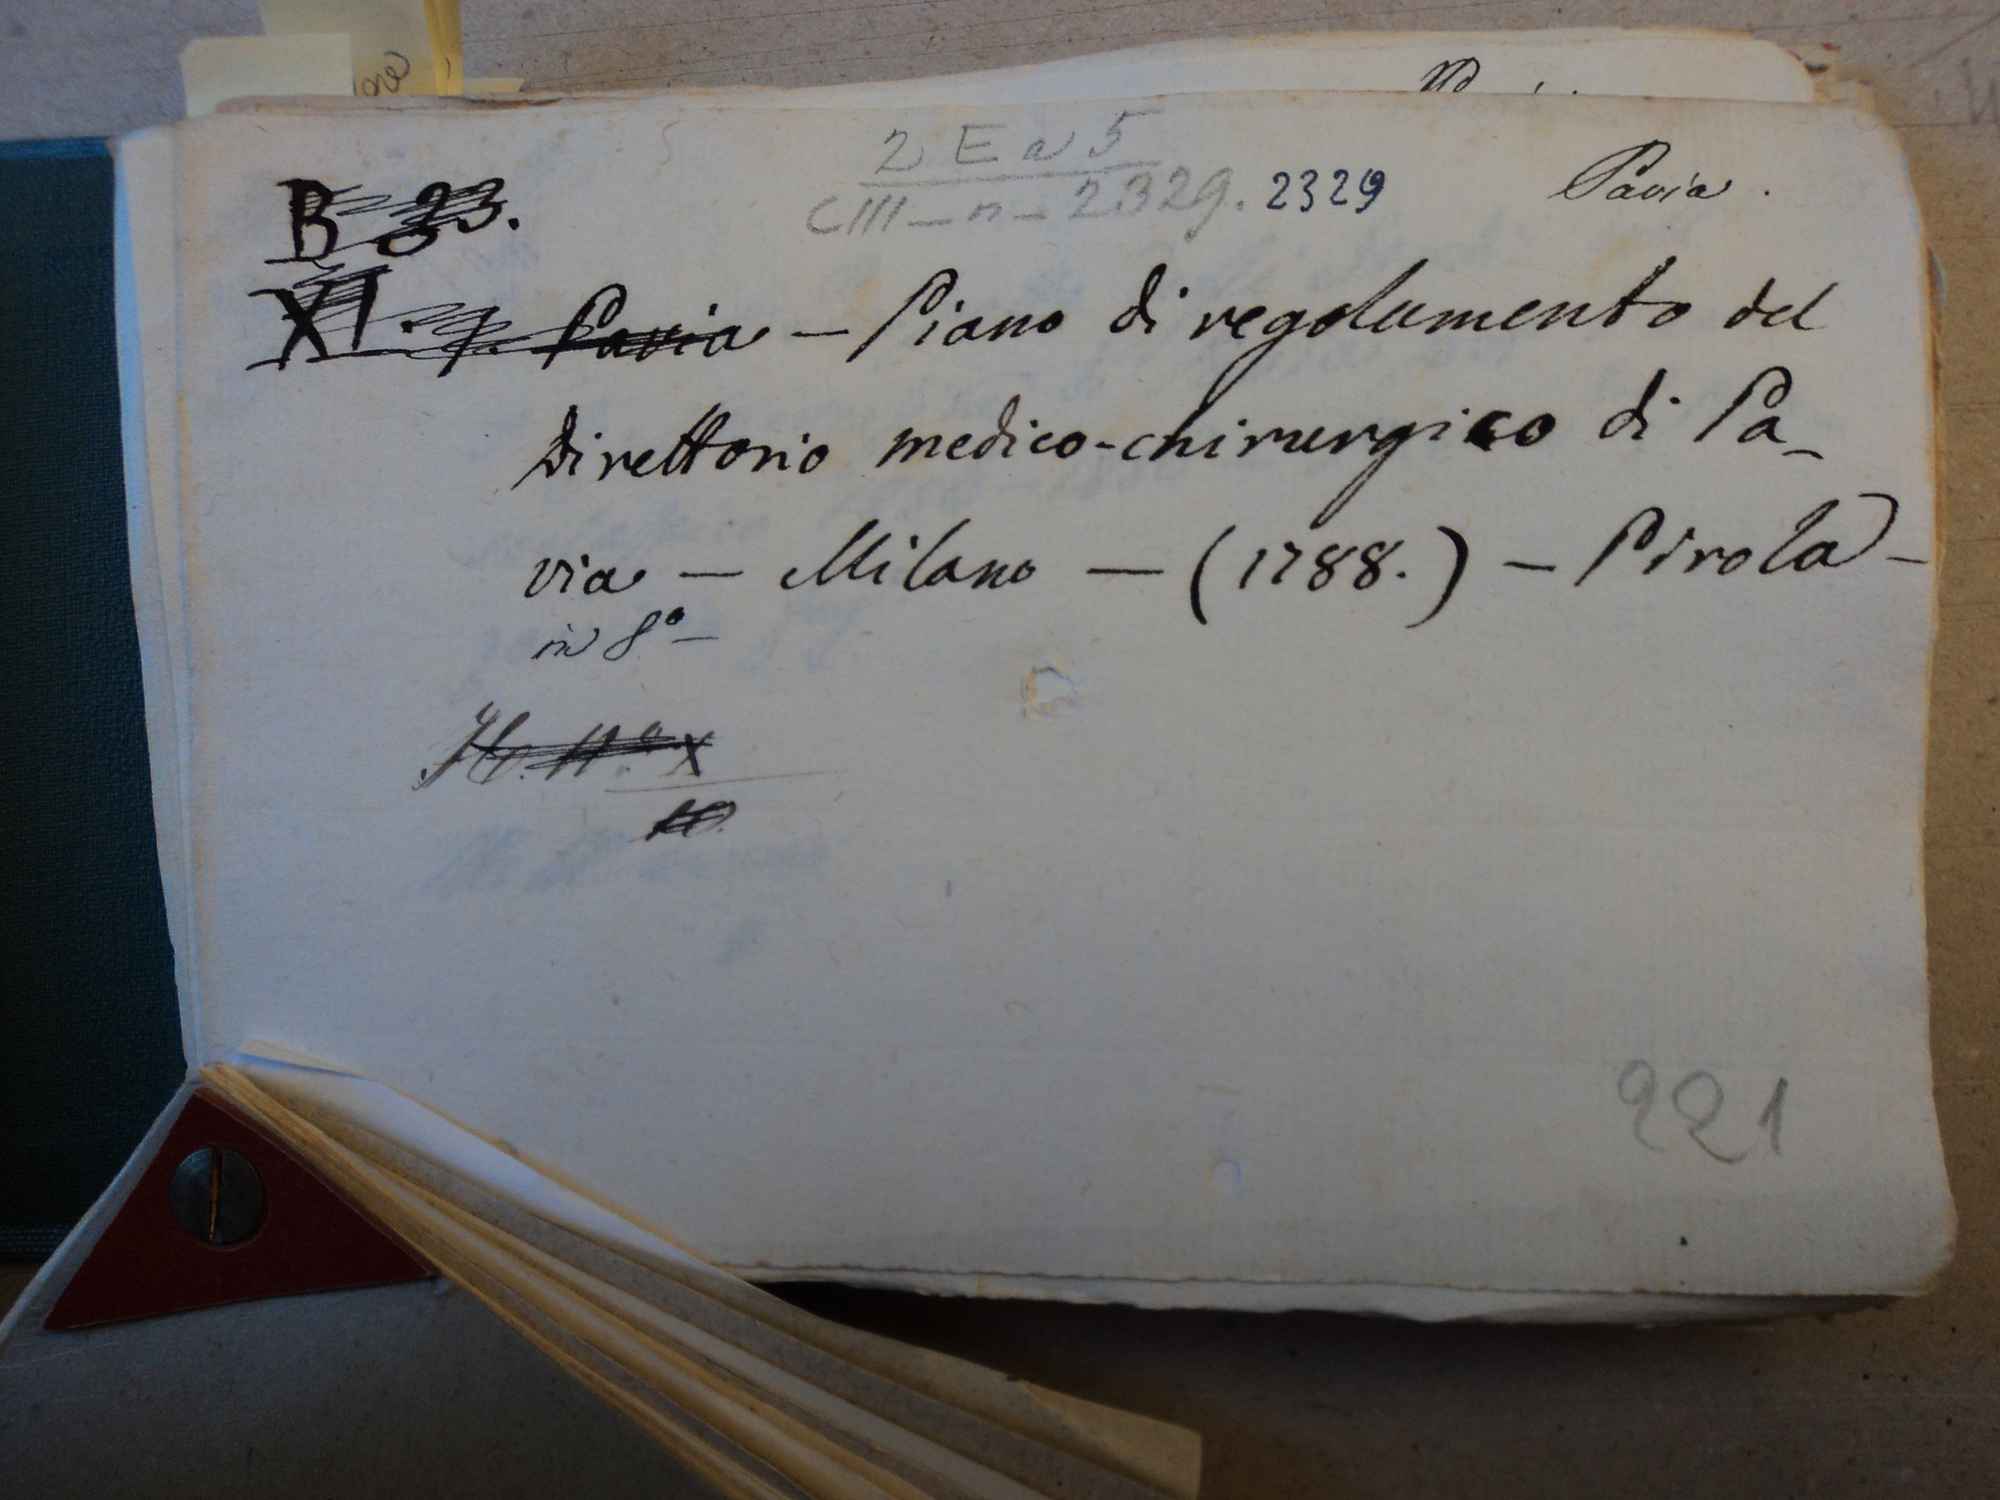 2 E a 5
CIII - n - 2329. 2329 Pavia.
B 33.
XI. Pavia - Piano di regolamento del
Direttorio medico-chirurgico di Pa-
via - Milano - (1788.) - Pirola -
in 8° -
X
10.
221